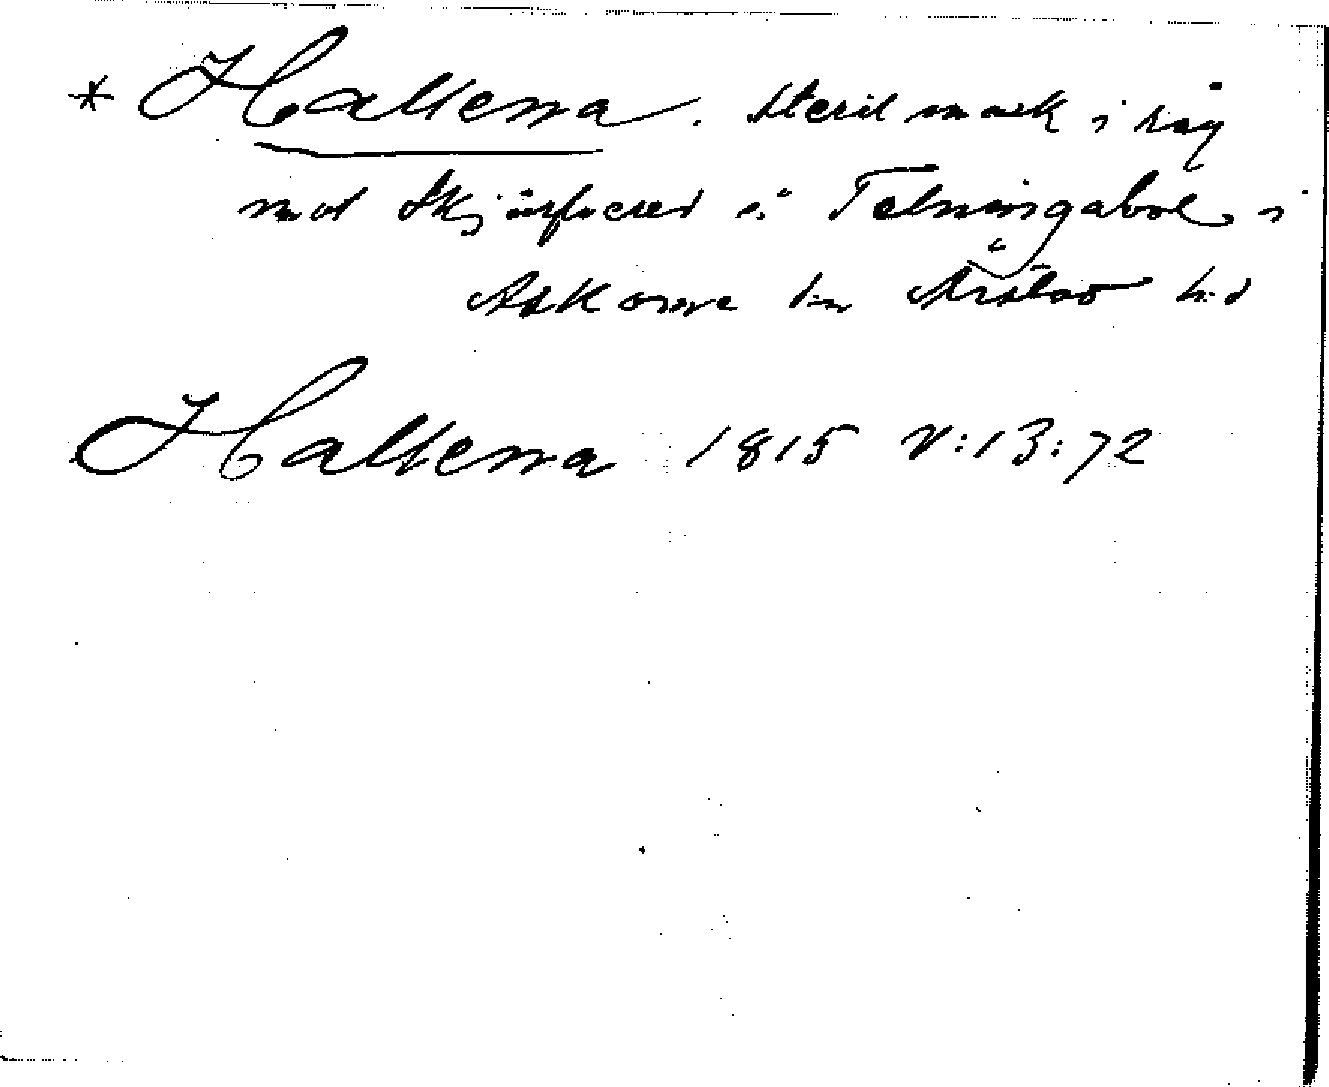 * Hallerna. Steril mark i råg
mot Skjärfvered å Telningabol i
Askome sn Årstad hd
Hallerna 1815 V:13:72